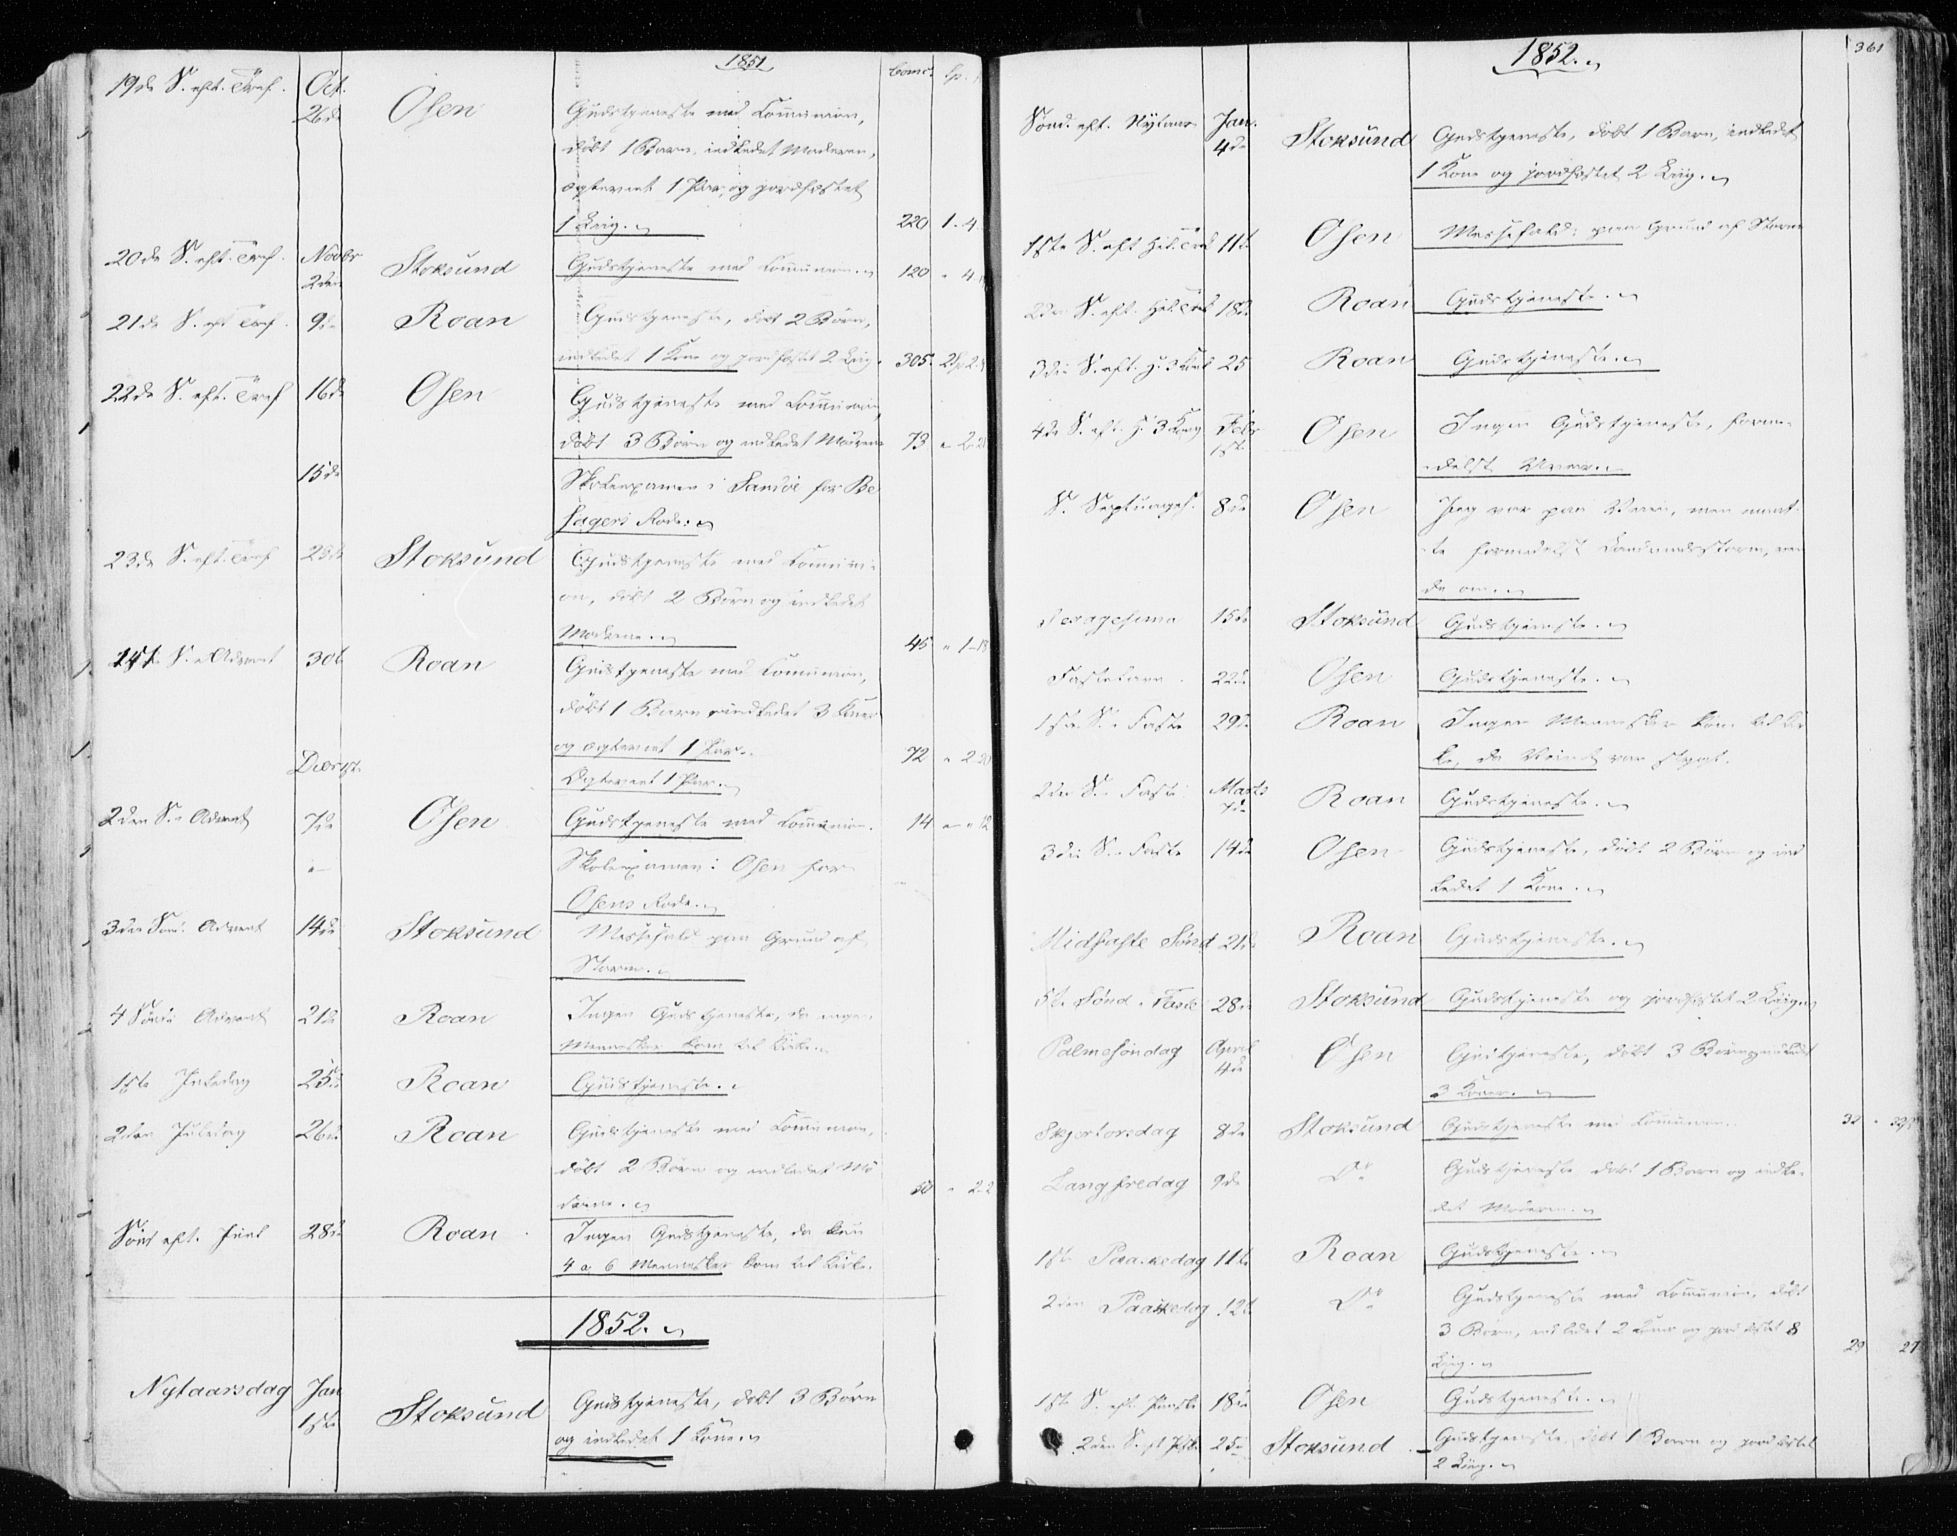 1851
Comc. Sp.
19de S. eft. Tref. Oct. 26de Osen Gudstjeneste med Communion,
døbt 1 Barn, indledet Moderen,
ægteviet 1 Par, og jordfæstet
1 Liig. 220 1-4
20de S. eft. Tref. Novbr 2den Stoksund Gudstjeneste med Communion. 120 " 4
21de S. eft Tref. 9de Roan Gudstjeneste, døbt 2 Børn,
indledet 1 Kone og jordfæstet 2 Liig. 305.
22de S. eft. Tref 16de Osen Gudstjeneste med Communion,
døbt 3 Børn og indledet Mødrene 73
15de Skoleexamen i Sandøe for Be
sagers Rode.
23de S. eft. Tref 23de Stoksund Gudstjeneste med Communi-
on, døbt 2 Børn og indledet
Mødrene. 45 " 1-18
1ste S. i Advent 30te Roan Gudstjeneste med Communion,
døbt 1 Barn, indledet 3 Koner
og ægteviet 1 Par. 72 " 2-20
Decbr 1ste Ægteviet 1 Par.
2den S. i Advent 7de Osen Gudstjeneste med Communion. 14 " " 12
Skoleexamen i Osen for
Osens Rode.
3die Sønd. Advent 14de Stoksund Messefald paa Grund af
Storm.
4 Sønd. Advent 21de Roan Ingen Gudstjeneste, da ingen
Mennesker kom til Kirke.
1ste Juledag 25de Roan Gudstjeneste.
2den Juledag 26de Roan Gudstjeneste med Communion,
døbt 2 Børn og indledet Mø
drene. 50 " 2-2
Sønd eft. Juul 28de Roan Ingen Gudstjeneste, da kun
4 a 6 Mennesker kom til Kirke.
1852.
Nytaarsdag Jan 1ste Stoksund Gudstjeneste, døbt 3 Børn
og indledet 1 Kone.
1852.
361
Sønd. eft. Nytaar Jan. 4de Stoksund Gudstjeneste, døbt 1 Barn, indledet
1 Kone og jordfæstet 2 Liig.
1ste S. eft Hel. Tre 11te Osen Messefald: paa Grund af Storm
2den S. eft. Hel. Tre 18de Roan Gudstjeneste.
3die S. eft. H. 3 Kong 25 Roan Gudstjeneste.
4de S. eft. H. 3 Kong Febr 1ste Osen Ingen Gudstjeneste, forme-
delst Uveir.
S. Septuages. 8de Osen Jeg var paa Veien, men maat-
te formedelst Landvindsstorm, ven
de om.
Sexagesima 15de Stoksund Gudstjeneste.
Fastelavn 22de Osen Gudstjeneste.
1ste S. i Faste 29de Roan Ingen Mennesker kom til Kir
ke, da Veiret var slet.
2den S. i Faste Marts 7de Roan Gudstjeneste.
3die S. i Faste 14de Osen Gudstjeneste, døbt 2 Børn og ind
ledet 1 Kone.
Midfaste Sønd 21de Roan Gudstjeneste.
5te Sønd. i Faste 28de Stoksund Gudstjeneste og jordfæstet 2 Liig
Palmesøndag April 4de Osen Gudstjeneste, døbt 3 Børn, indledet
3 Koner.
Skjertorsdag 8de Stoksund Gudstjeneste med Communion. 32
Langfredag 9de Do Gudstjeneste døbt 1 Barn og indle-
det Moderen.
1ste Paaskedag 11te Roan Gudstjeneste.
2den Paaskedag 12te Do Gudstjeneste med Communion, døbt
3 Børn, indledet 2 Koner og jordfæstet 8
Liig. 29 27
1ste S. eft. Paaske 18de Osen Gudstjeneste.
2den S. eft Pask. 25de Stoksund Gudstjeneste, døbt 1 Barn og jordfæstet
2 Liig.